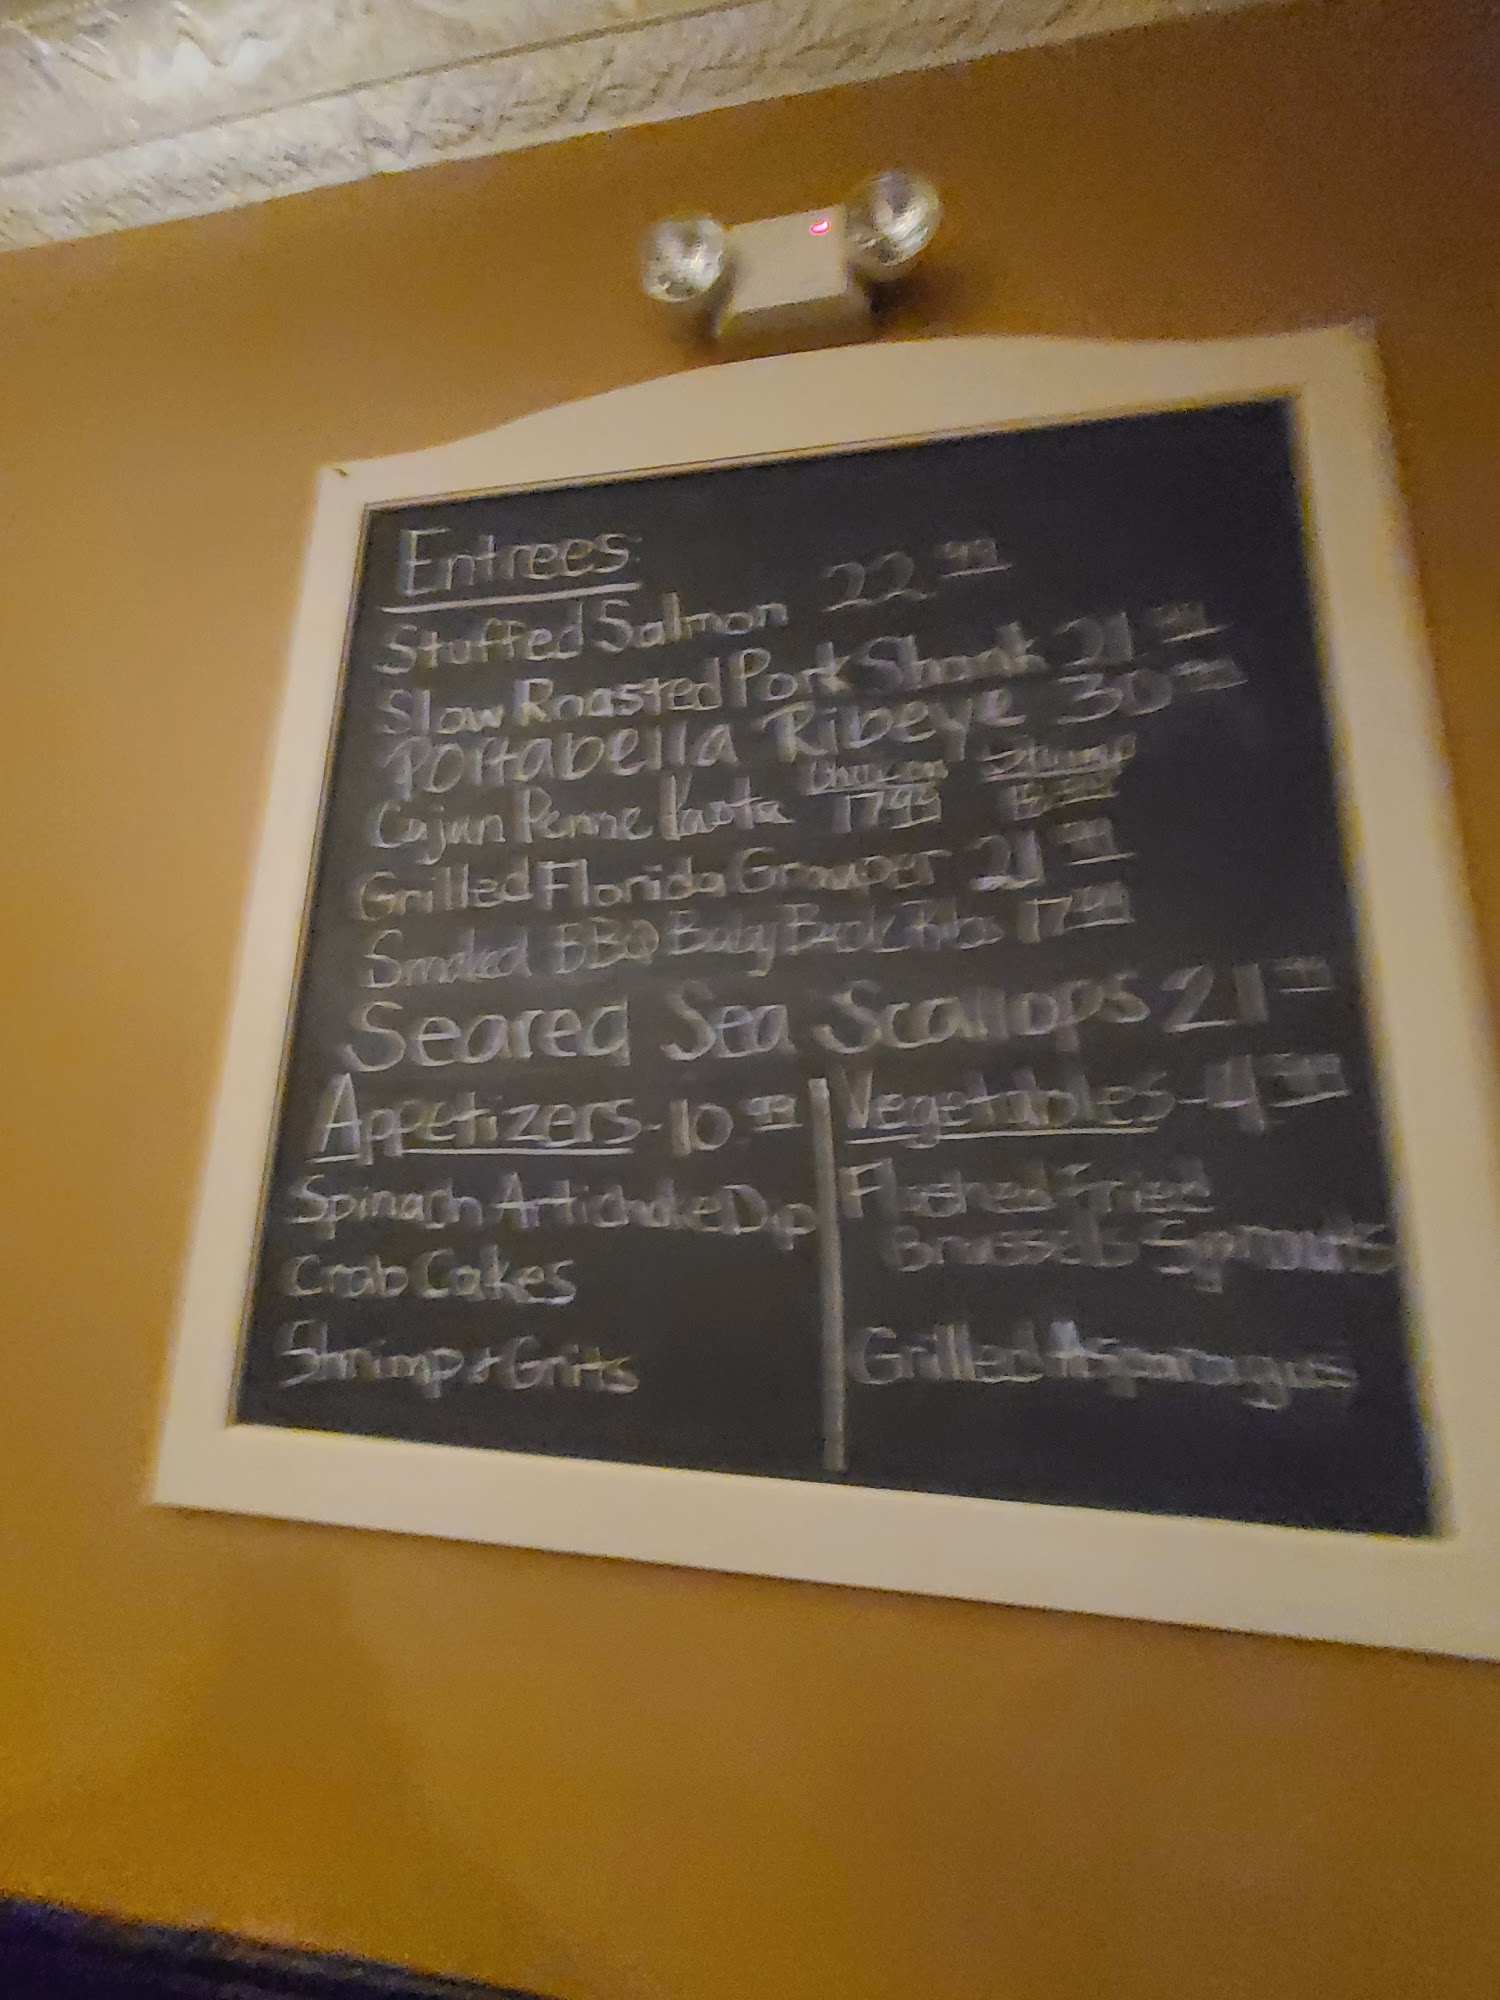 Entrees:
Stuffed Salmon 22.99
Slow Roasted Pork Shank 21.99
Portabella Ribeye 30.99
Cajun Penne Pasta Chicken 17.99 Shrimp
Grilled Florida Grouper 21.99
Smoked BBQ Baby Back Ribs 17.99
Seared Sea Scallops 21.99
Appetizers - 10.99
Spinach Artichoke Dip
Crab Cakes
Shrimp & Grits
Vegetables - 4.99
Flashed Fried
Brussels Sprouts
Grilled Asparagus